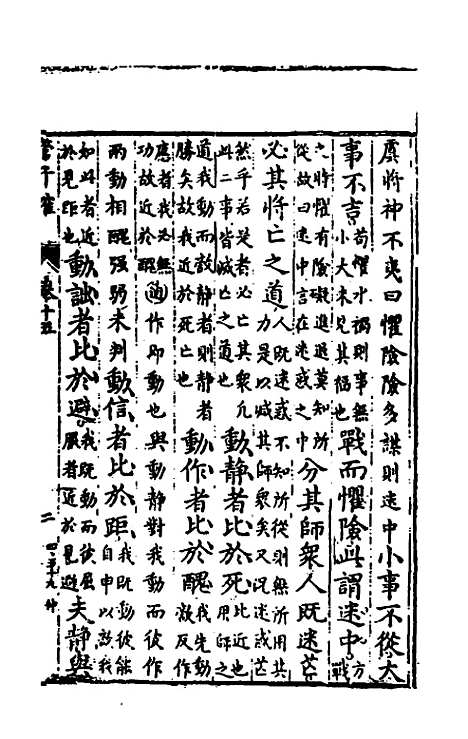 虞將神不爽曰懼險險多謀則迷中小事不從大
事不吉苟懼水禍則事無小大未見其福也戰而懼險此謂迷中方戰
之將懼有險礙進退莫知所從故曰迷中言在迷惑之中分其師衆人既迷芒
必其將亡之道人既迷惑不知所從則無所用其力是以滅其師衆矣又況迷或芒
然乎若是者必亡其衆凡此二事皆滅亡之道也動靜者比於死比近也用師之
道我動而敵靜者則靜者勝矣故我近於死亡也動作者比於醜我先動敵反作
應者我必無功故近於醜作即動也與動靜對我動而彼作
兩動相醜强弱未判動信者比於距我既動彼能自申以敵我
如此者近於見距也動詘者比於避我既動而彼屈服者近於見避夫靜與
管子榷 卷十五 二